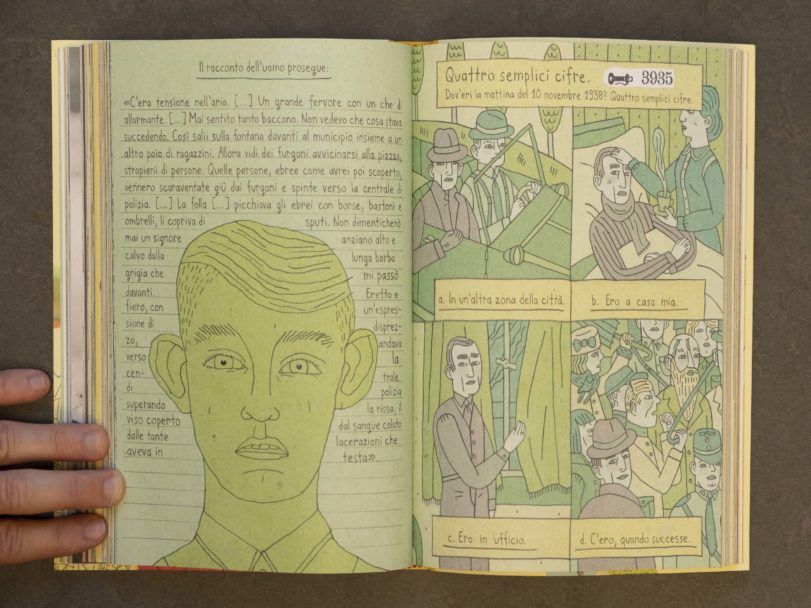 Il racconto dell'uomo prosegue:
«C'era tensione nell'aria. [...] Un grande fervore con un che di
allarmante. [...] Mai sentito tanto baccano. Non vedevo che cosa stava
succedendo. Così salii sulla fontana davanti al municipio insieme a un
altro paio di ragazzini. Allora vidi dei furgoni avvicinarsi alla piazza,
strapieni di persone. Quelle persone, ebree come avrei poi scoperto,
vennero scaraventate giù dai furgoni e spinte verso la centrale di
polizia. [...] La folla [...] picchiava gli ebrei con borse, bastoni e
ombrelli, li copriva di sputi. Non dimenticherò
mai un signore anziano alto e
calvo dalla lunga barba
grigia che mi passò
davanti. Eretto e
fiero, con un'espres-
sione di disprez-
zo, andava
verso la
cen- trale
di polizia
superando la rissa, il
viso coperto dal sangue colato
dalle tante lacerazioni che
aveva in testa»
Quattro semplici cifre. 3935
Dov'eri la mattina del 10 novembre 1938? Quattro semplici cifre.
a. In un'altra zona della città.
b. Ero a casa mia.
c. Ero in ufficio.
d. C'ero, quando successe.